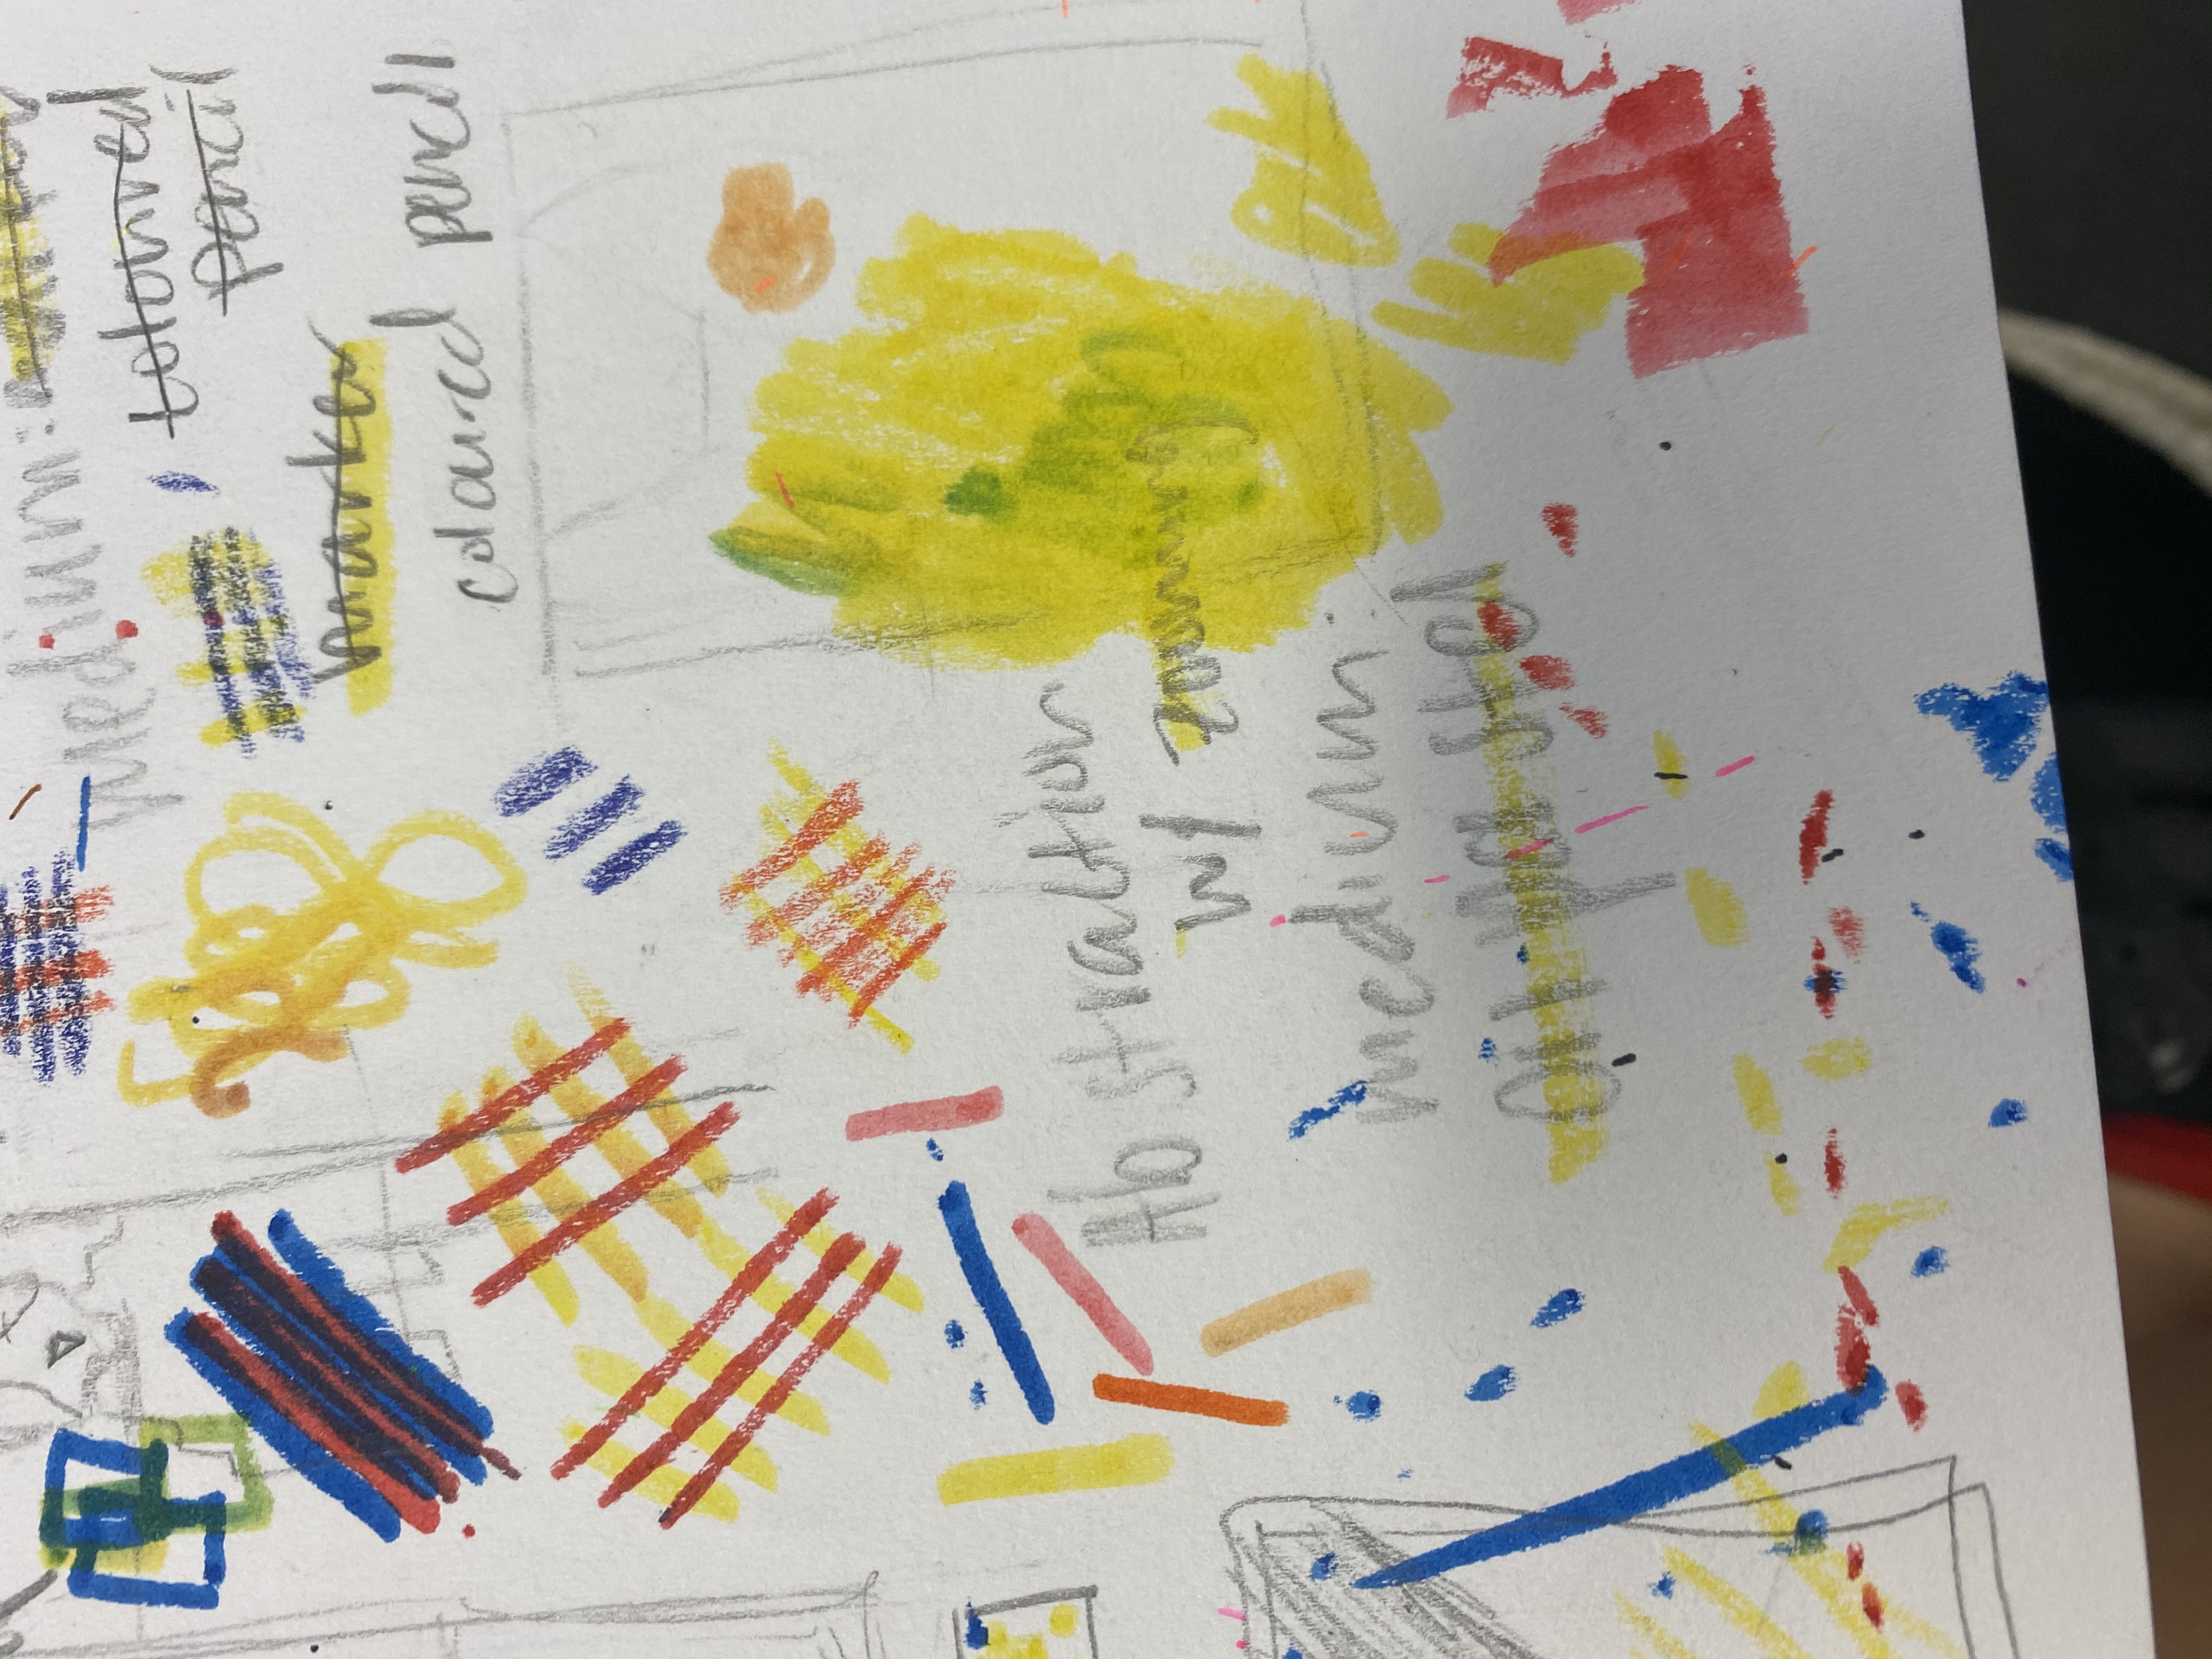 medium: marker
coloured
pencil
marker
coloured pencil
Abstraction
w/ zooming
medium:
Oil pastel